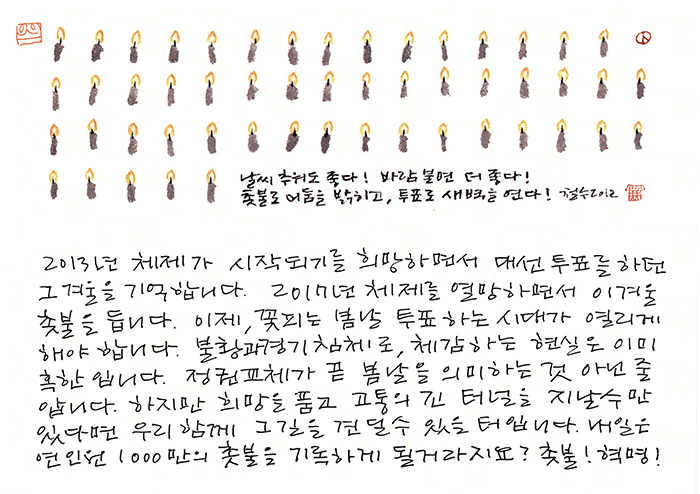 날씨 추워도 좋다! 바람 불면 더 좋다!
촛불로 어둠을 밝히고, 투표로 새벽을 연다! 철수2012
2013년 체제가 시작되기를 희망하면서 대선 투표를 하던
그 겨울을 기억합니다. 2017년 체제를 열망하면서 이 겨울
촛불을 듭니다. 이제, 꽃피는 봄날 투표하는 시대가 열리게
해야 합니다. 불황과 경기침체로, 체감하는 현실은 이미
혹한입니다. 정권교체가 곧 봄날을 의미하는 것 아닌 줄
압니다. 하지만 희망을 품고 고통의 긴 터널을 지날 수만
있다면 우리 함께 그 길을 견딜 수 있을 터입니다. 내일은
연인원 1000만의 촛불을 기록하게 될거라지요? 촛불! 혁명!